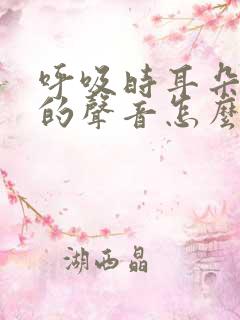 呼吸時耳朵
的聲音怎麼
湖西晶